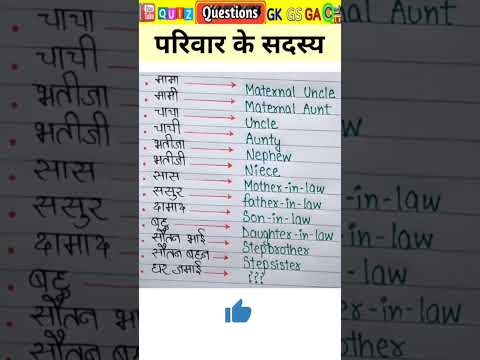 QUIZ Questions GK GS GA
परिवार के सदस्य
मामा Maternal Uncle
मामी Maternal Aunt
चाचा Uncle
चाची Aunty
भतीजा Nephew
भतीजी Niece
सास Mother-in-law
ससुर father-in-law
दामाद Son-in-law
बहु Daughter-in-law
सौतन भाई Stepbrother
सौतन बहन Stepsister
घर जमाई ???
चाचा
चाची
भतीजा
भतीजी
सास
ससुर
दामाद
बहु
सौतन
सौतन
Aunt
-in-law
-law
-in-law